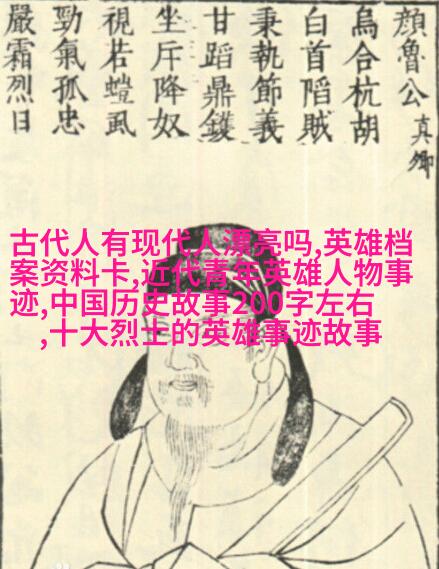 顏魯公真卿
烏合杭胡
白首陷賊
秉執節義
甘蹈鼎鑊
坐斥降奴
視若螘虱
勁氣孤忠
嚴霜烈日
古代人有现代人漂亮吗,英雄档
案资料卡,近代青年英雄人物事
迹,中国历史故事200字左右
,十大烈士的英雄事迹故事